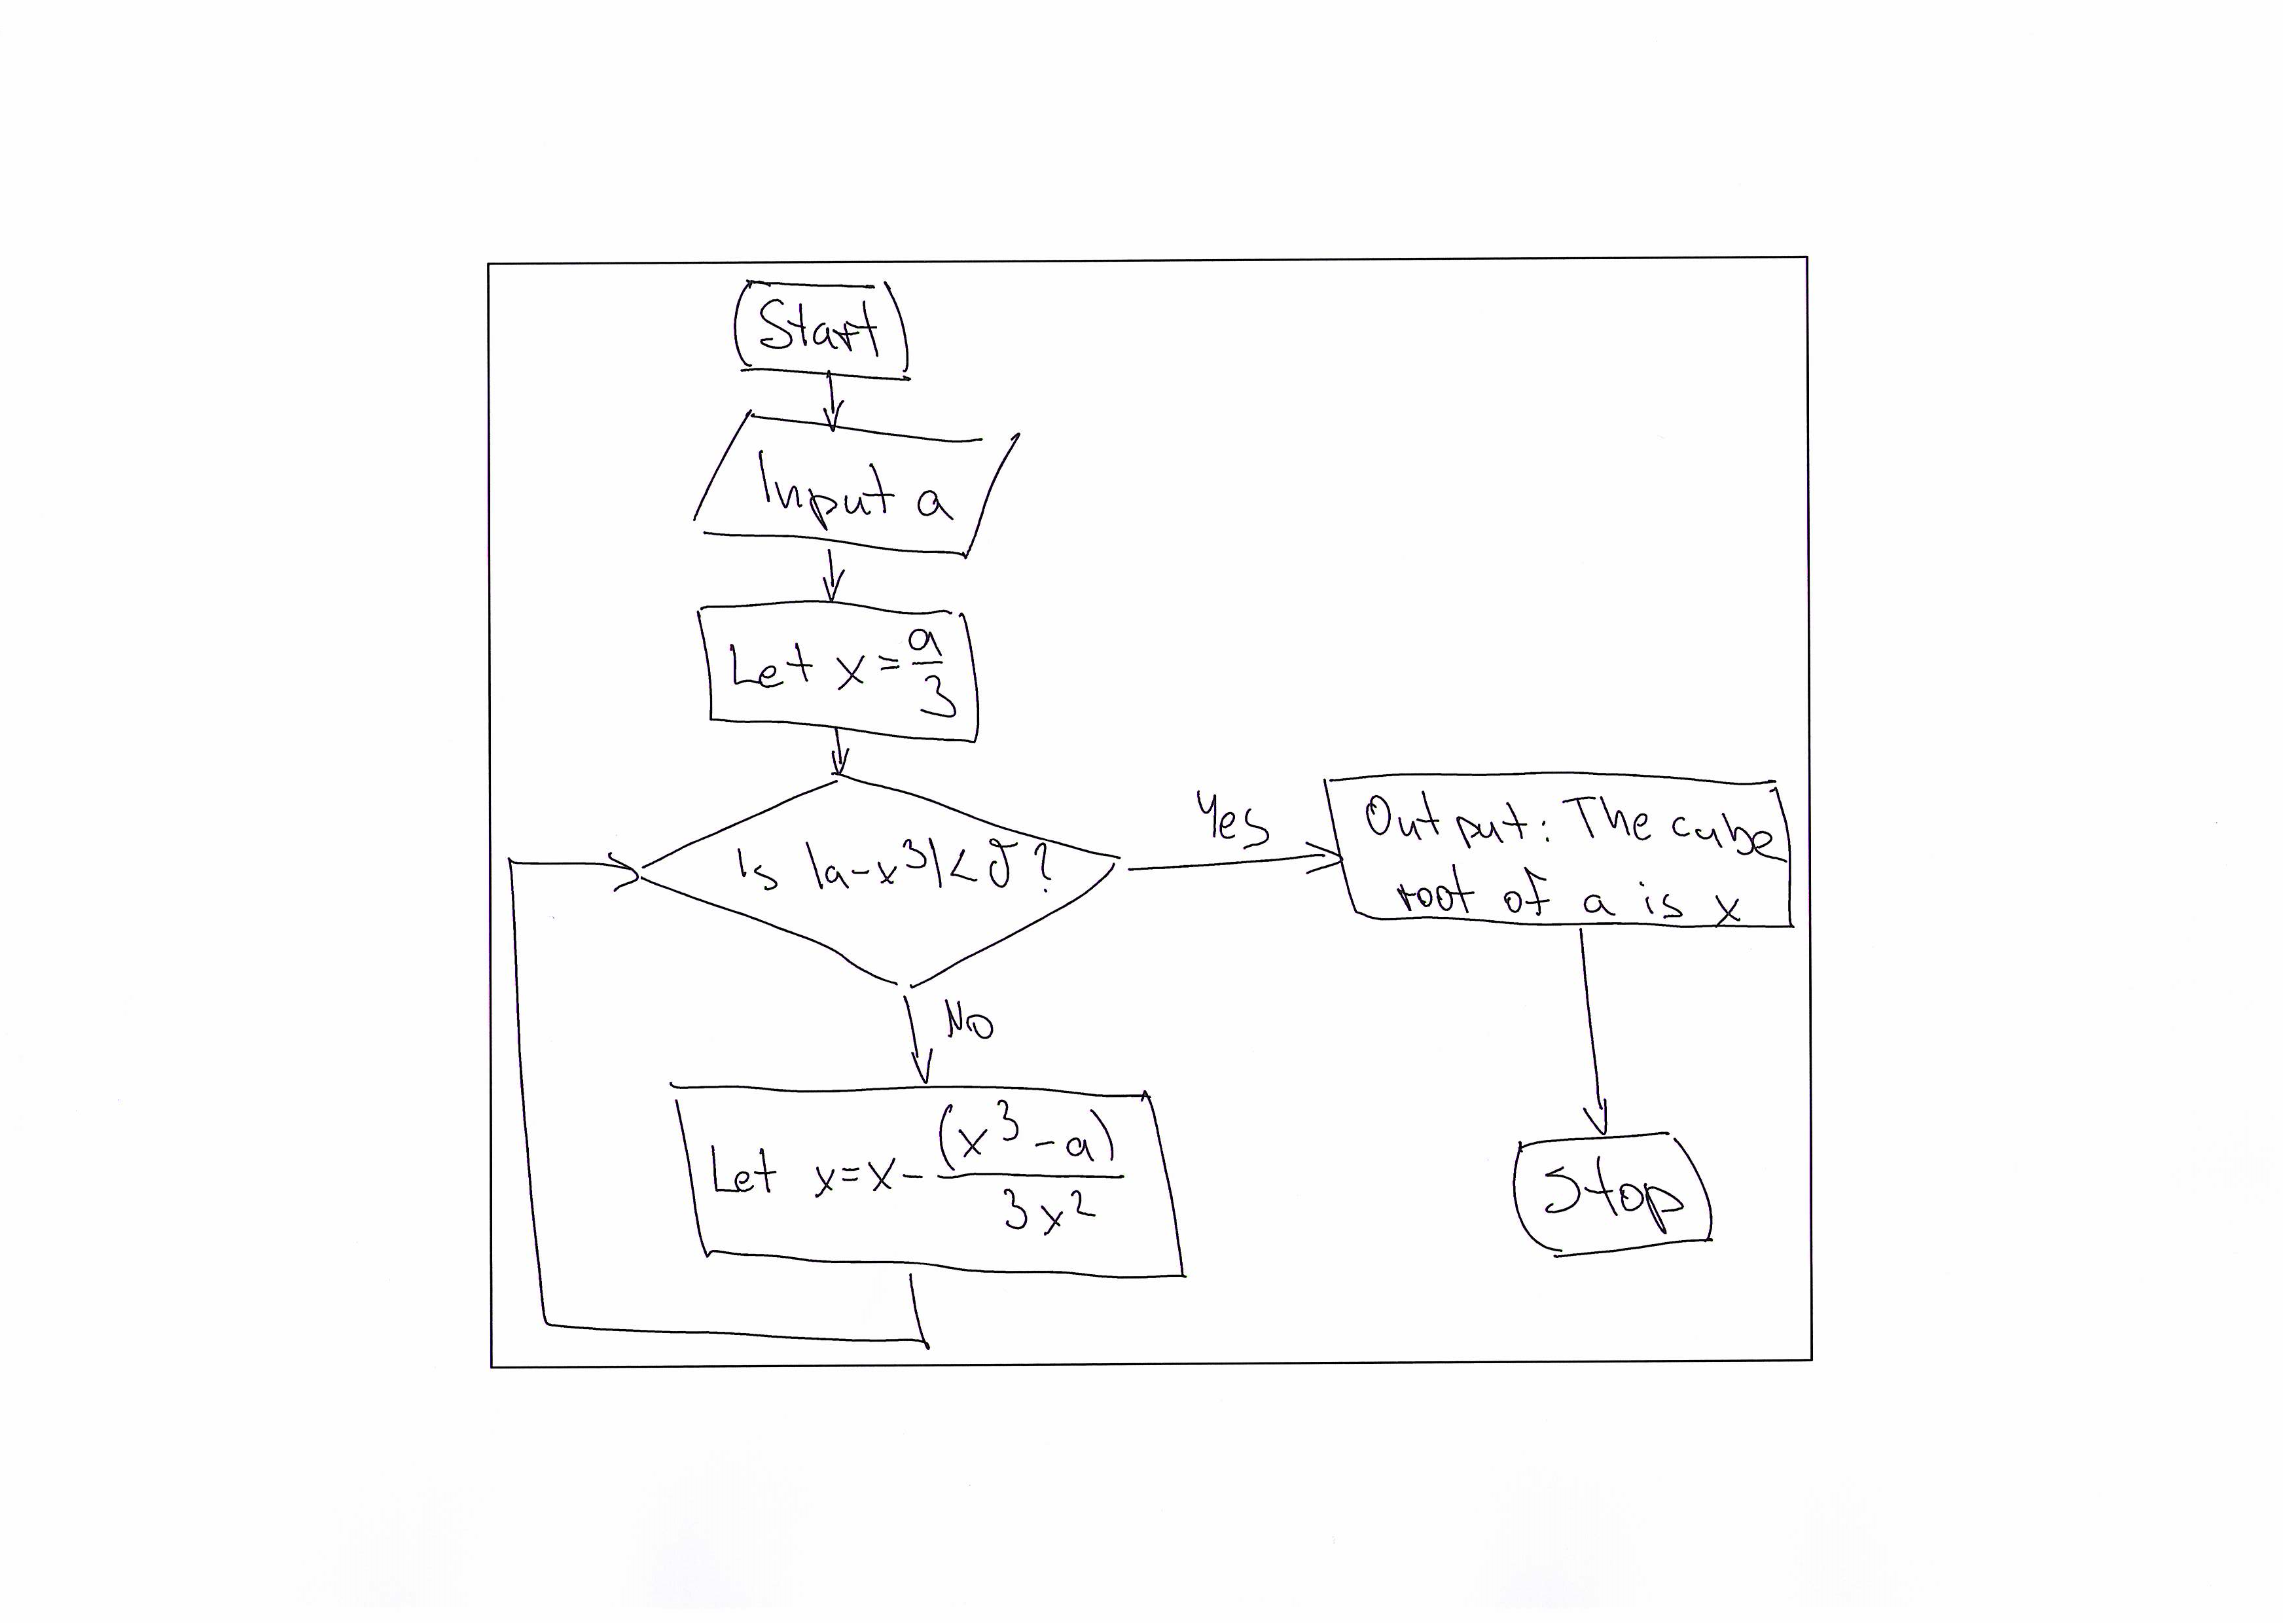 Start
Input a
Let x = a/3
Is |a-x³|<δ?
Yes
Output: The cube
root of a is x
No
Let x=x-(x³-a)/3x²
Stop